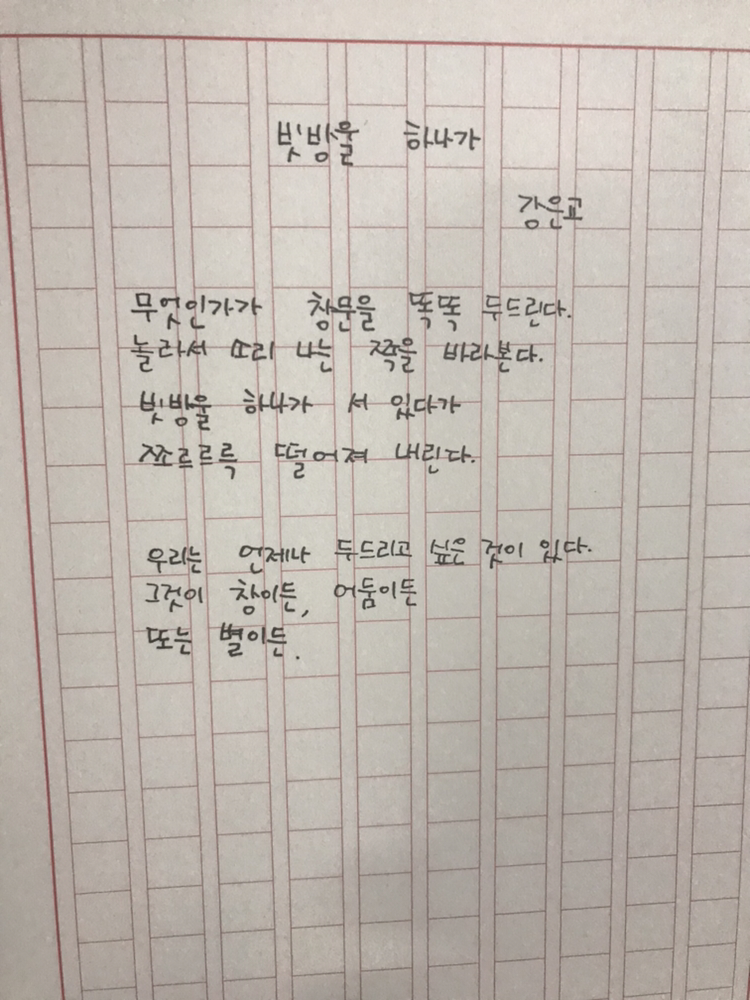 빗방울 하나가
강은교
무엇인가가 창문을 똑똑 두드린다.
놀라서 소리 나는 쪽을 바라본다.
빗방울 하나가 서 있다가
쪼르르륵 떨어져 내린다.
우리는 언제나 두드리고 싶은 것이 있다.
그것이 창이든, 어둠이든
또는 별이든.